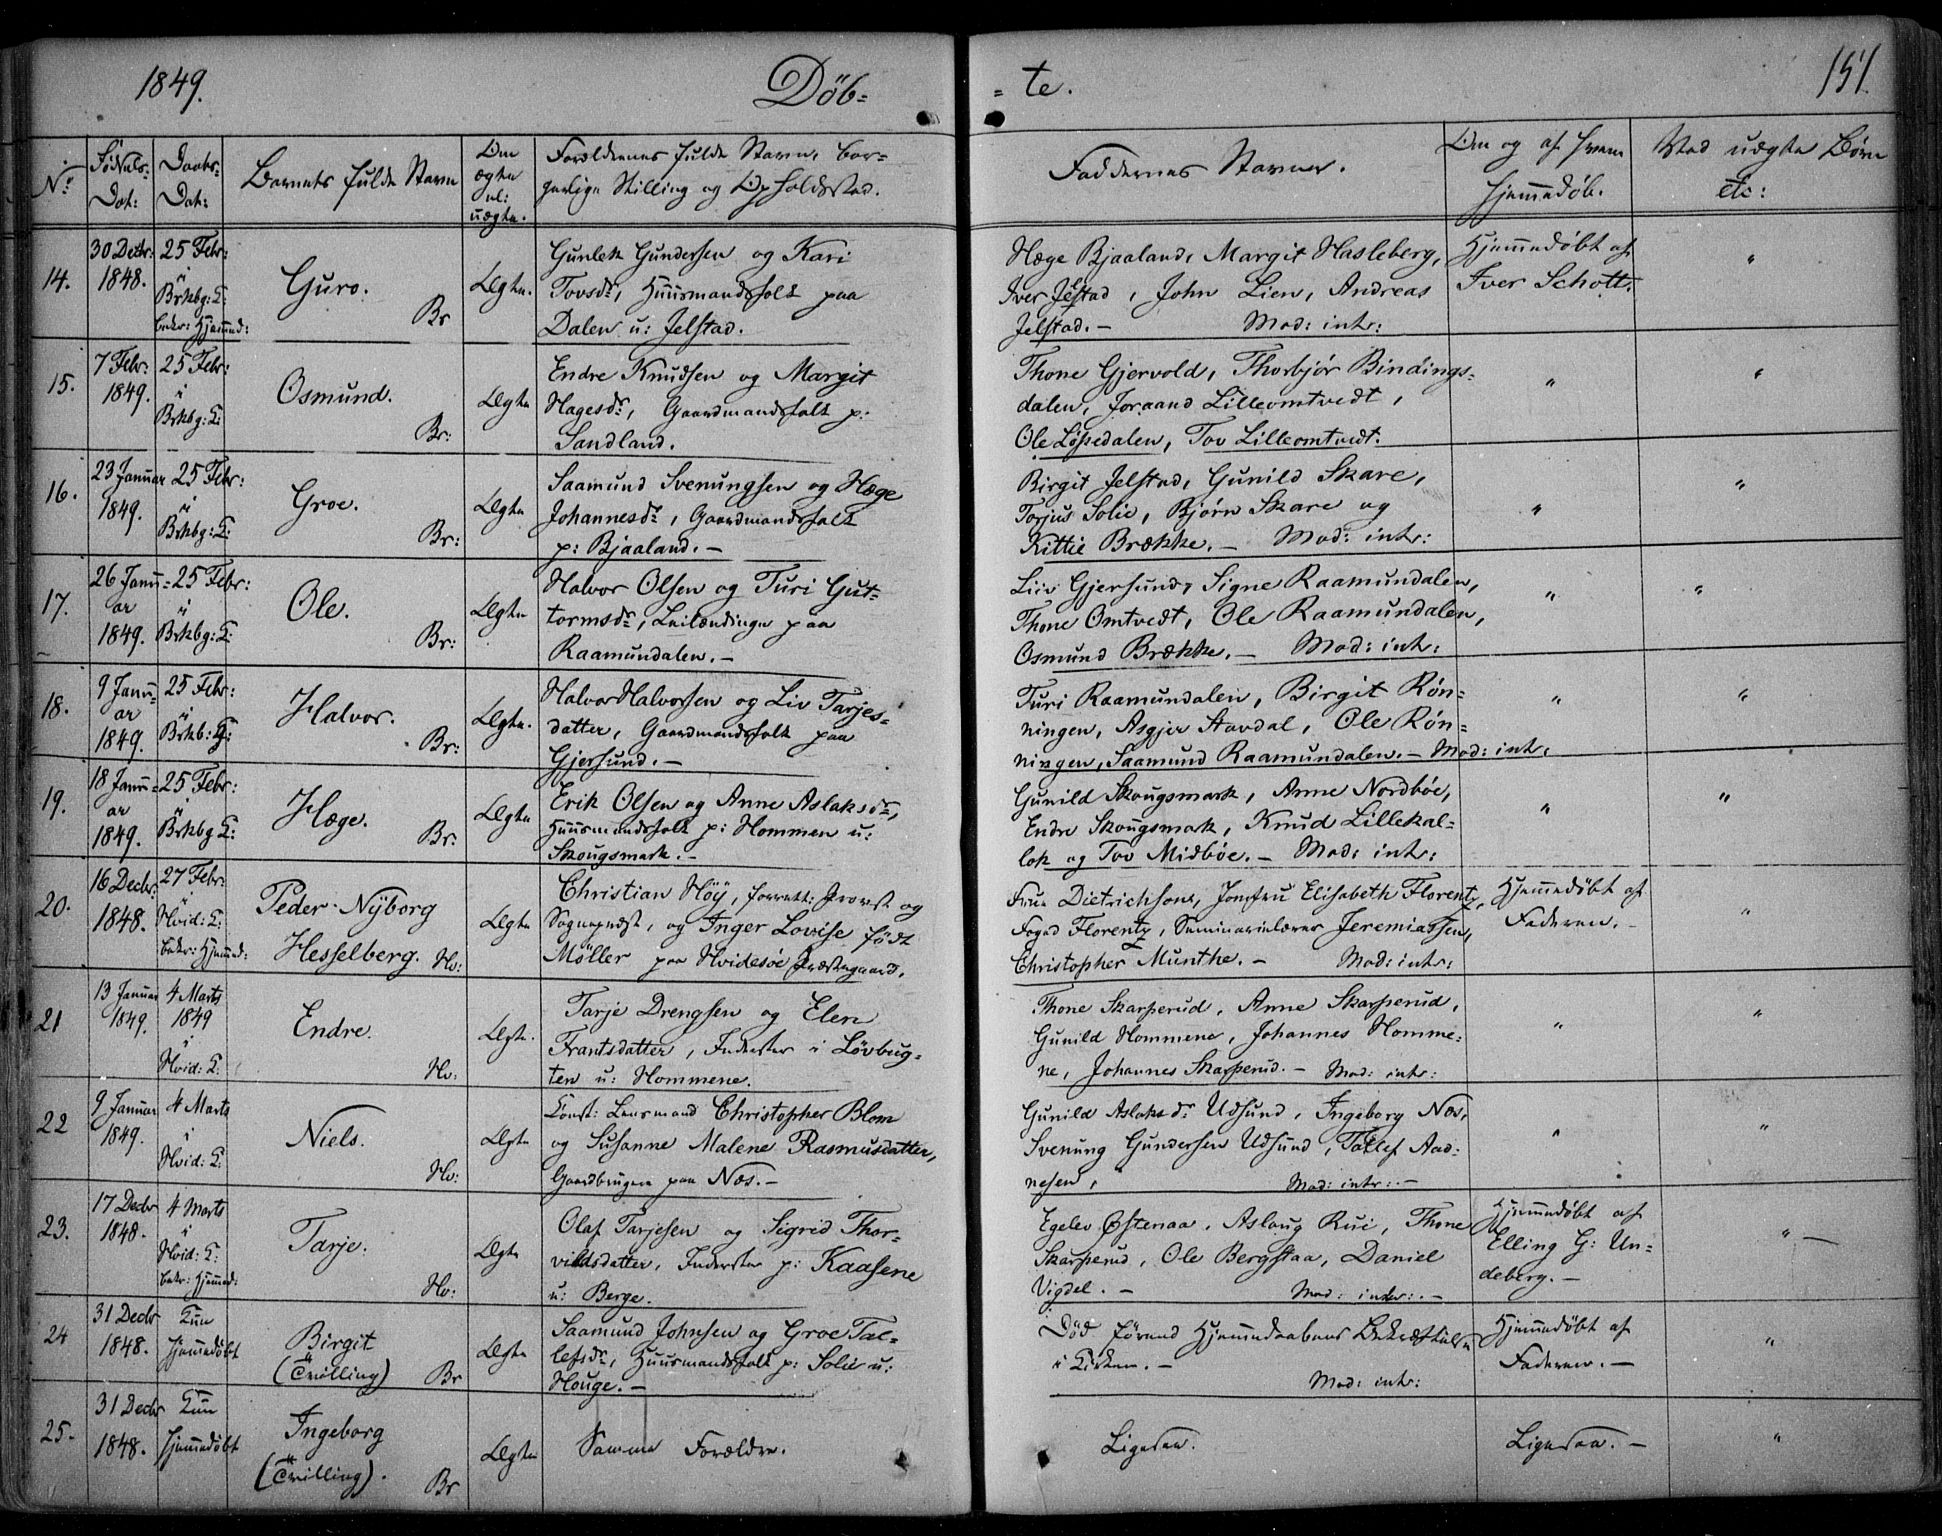 1849.
Döb=
= te.
151.
No
Fødsels-Dat:
Daabs-Dat:
Barnets fulde Navn
Om ægte el: uægte.
Forældrenes fulde Navn, bor=
gerlige Stilling og Opholdssted.
Faddernes Navner.
Om og af hvem
hjemmedøb.
Mod uægte Børn
etc:
14.
30 Decbr: 1848.
25 Febr: i Brkbg: K: bekr: Hjemmed:
Guro.
Br
Ægte.
Gunlek Gundersen og Kari
Tovsdr, Huusmandsfolk paa
Dalen u: Jelstad.
Hæge Bjaaland, Margit Hasleberg,
Iver Jelstad, John Lien, Andreas
Jelstad. — Mod: intr:
Hjemmedøbt af
Iver Schott.
"
15.
7 Febr: 1849.
25 Febr: i Brkbg: K:
Osmund.
Br:
Ægte
Endre Knudsen og Margit
Hagesdr, Gaardmandsfolk p:
Sandland.
Thone Gjervold, Thorbjør Bindings=
dalen, Joraand Lilleomtvedt,
Ole Løssedalen, Tov Lilleomtvedt.
"
"
16.
23 Januar 1849.
25 Febr: i Brkbg: K:
Groe.
Br:
Ægte
Saamund Svenungsen og Hæge
Johannesdr, Gaardmandsfolk
p: Bjaaland. —
Birgit Jelstad, Gunild Skare,
Torjus Solie, Bjørn Skare og
Kittil Brække. — Mod: intr:
"
"
17.
26 Janu=ar 1849.
25 Febr: i Brkbg: K:
Ole.
Br:
Ægte
Halvor Olsen og Turi Gut=
tormsdr, Leilændinge paa
Raamundalen. —
Liv Gjersund, Signe Raamundalen,
Thone Omtvedt, Ole Raamundalen,
Osmund Brække. — Mod: intr:
"
"
18.
9 Janu=ar 1849.
25 Febr: i Brkb: K:
Halvor.
Br:
Ægte.
Halvor Halvorsen og Liv Tarjes=
datter, Gaardmandsfolk paa
Gjersund. —
Turi Raamundalen, Birgit Røn=
ningen, Asgjer Stavdal, Ole Røn=
ningen, Saamund Raamundalen. — Mod: intr:
"
"
19.
18 Janu=ar 1849.
25 Febr: i Brkbg K:
Hæge.
Br:
Ægte
Erik Olsen og Anne Aslaksdr,
Huusmandsfolk p: Hommen u:
Skougsmark. —
Gunild Skougsmark, Anne Nordbøe,
Endre Skougsmark, Knud Lillekal=
lok og Tov Midbøe. — Mod: intr:
"
"
20.
16 Decbr: 1848.
27 Febr: i Hvid: K: bekr: Hjemmed:
Peder Nÿborg
Hesselberg.
Hv:
Ægte
Christian Höÿ, forrett: Provst og
Sognepræst, og Inger Lovise født
Möller paa Hvidesøe Præstegaard.
Frue Dietrichson, Jomfru Elisabeth Florentz,
Foged Florentz, Seminarielærer Jeremiassen,
Christopher Munthe. — Mod: intr:
Hjemmedøbt af
Faderen. —
"
21
13 Januar 1849.
4 Marts 1849 i Hvid: K:
Endre.
Hv:
Ægte.
Tarje Drengsen og Elen
Frantsdatter, Inderster i Lövbug=
ten u: Hommene.
Thone Skarperud, Anne Skarperud,
Gunild Hommene, Johannes Homme=
ne, Johannes Skarperud. — Mod: intr:
"
"
22
9 Januar 1849.
4 Marts i Hvid: K:
Niels.
Hv:
Ægte
Const: Lensmand Christopher Blom
og Susanne Malene Rasmusdatter,
Gaardbrugere paa Næs. —
Gunild Aslaksdr Udsund, Ingeborg Næs,
Svenung Gundersen Udsund, Tallef Aad=
nesen, Mod: intr: —
"
"
23.
17 Decbr 1848.
4 Marts i Hvid: K: bekr: Hjemmed:
Tarje.
Hv:
Ægte
Olaf Tarjesen og Sigrid Thor=
vildsdatter, Inderster p: Kaasene
u: Berge.
Egelev Østenaa, Aslaug Rui, Thone
Skarperud, Ole Bergstaa, Daniel
Vigdel. — Mod: inter: —
Hjemmedøbt af
Elling G: Un=
deberg. —
" —
24
31 Decbr 1848.
Kun hjemmedöbt
Birgit
(Tvilling)
Br
Ægte
Saamund Johnsen og Groe Tal=
lefsdr, Huusmandsfolk p: Solie u:
Houge. —
Död förend Hjemmedaabens Bekræftelse
i Kirken. —
Mod: intr:
Hjemmedøbt af
Faderen. —
"
25.
31 Decbr 1848.
Kun hjemmedöbt
Ingeborg
(Tvilling).
Br
Ægte
Samme Forældre.
Ligesaa.
Ligesaa. —
"